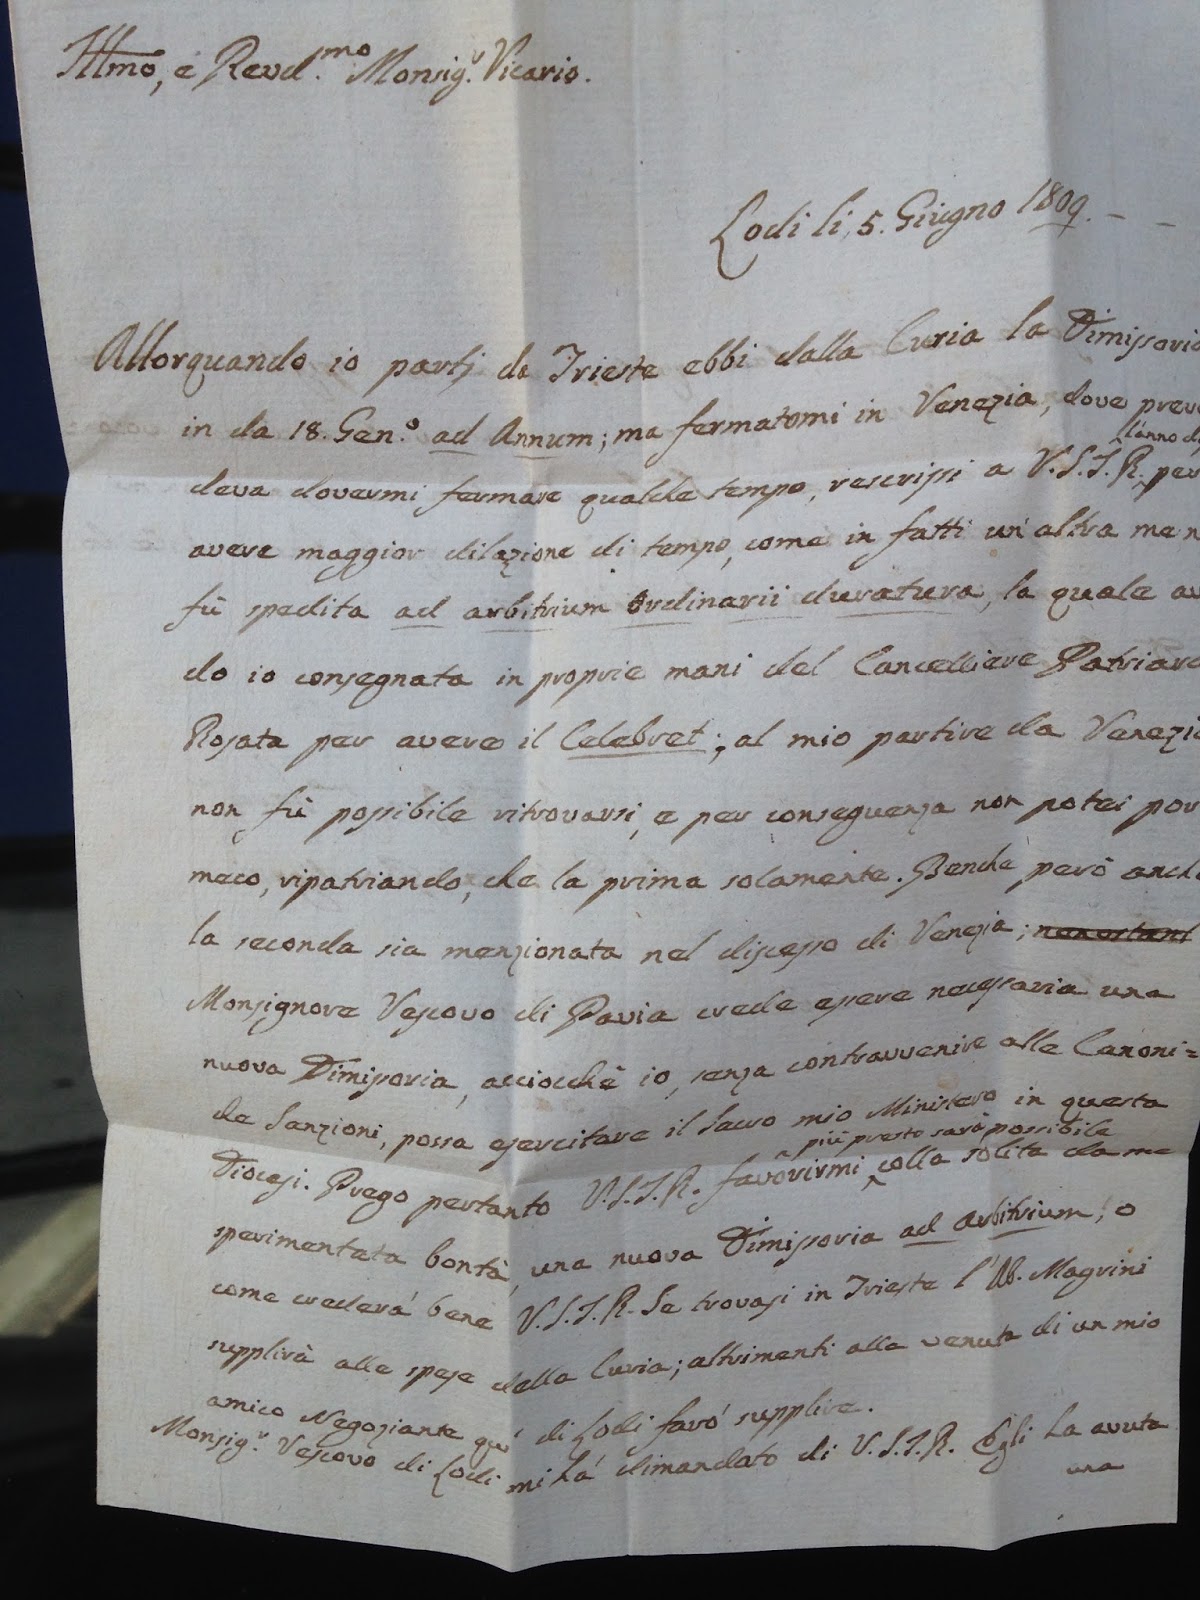 Illmo, e Revd.mo Monsig.r Vicario.
Lodi li 5. Giugno 1809.
Allorquando io partj da Trieste ebbi dalla Curia la Dimissoria
in da 18. Gen.o ad Annum; ma fermatomi in Venezia, dove preve
l'anno d
deva dovermi fermare qualche tempo, rescrissi a V.S.I.R. per
avere maggior dilazione di tempo, come in fatti un'altra me n
fù spedita ad arbitrium Ordinarii duratura, la quale av
do io consegnata in proprie mani del Cancelliere Patriarc
Rosata per avere il Celebret; al mio partire da Venezia
non fù possibile ritrovarsi, e per conseguenza non potei por
meco, ripatriando, che la prima solamente. Benchè però anche
la seconda sia menzionata nel discesso di Venezia; nonostant
Monsignore Vescovo di Pavia crede essere necessaria una
nuova Dimissoria, acciocchè io, senza contravvenire alle Canoni=
che Sanzioni, possa esercitare il Sacro mio Ministero in questa
più presto sarà possibile
Diocesi. Prego pertanto V.S.I.R. favorirmi colla solita da me
sperimentata bontà, una nuova Dimissoria ad arbitrium, o
come crederà bene V.S.I.R. Se trovasi in Trieste l'Ab. Magrini
supplirà alle spese della Curia; altrimenti alla venuta di un mio
amico Negoziante di Lodi farò supplire.
Monsig.r Vescovo di Lodi mi hà dimandato di V.S.I.R. Egli ha avuta
una